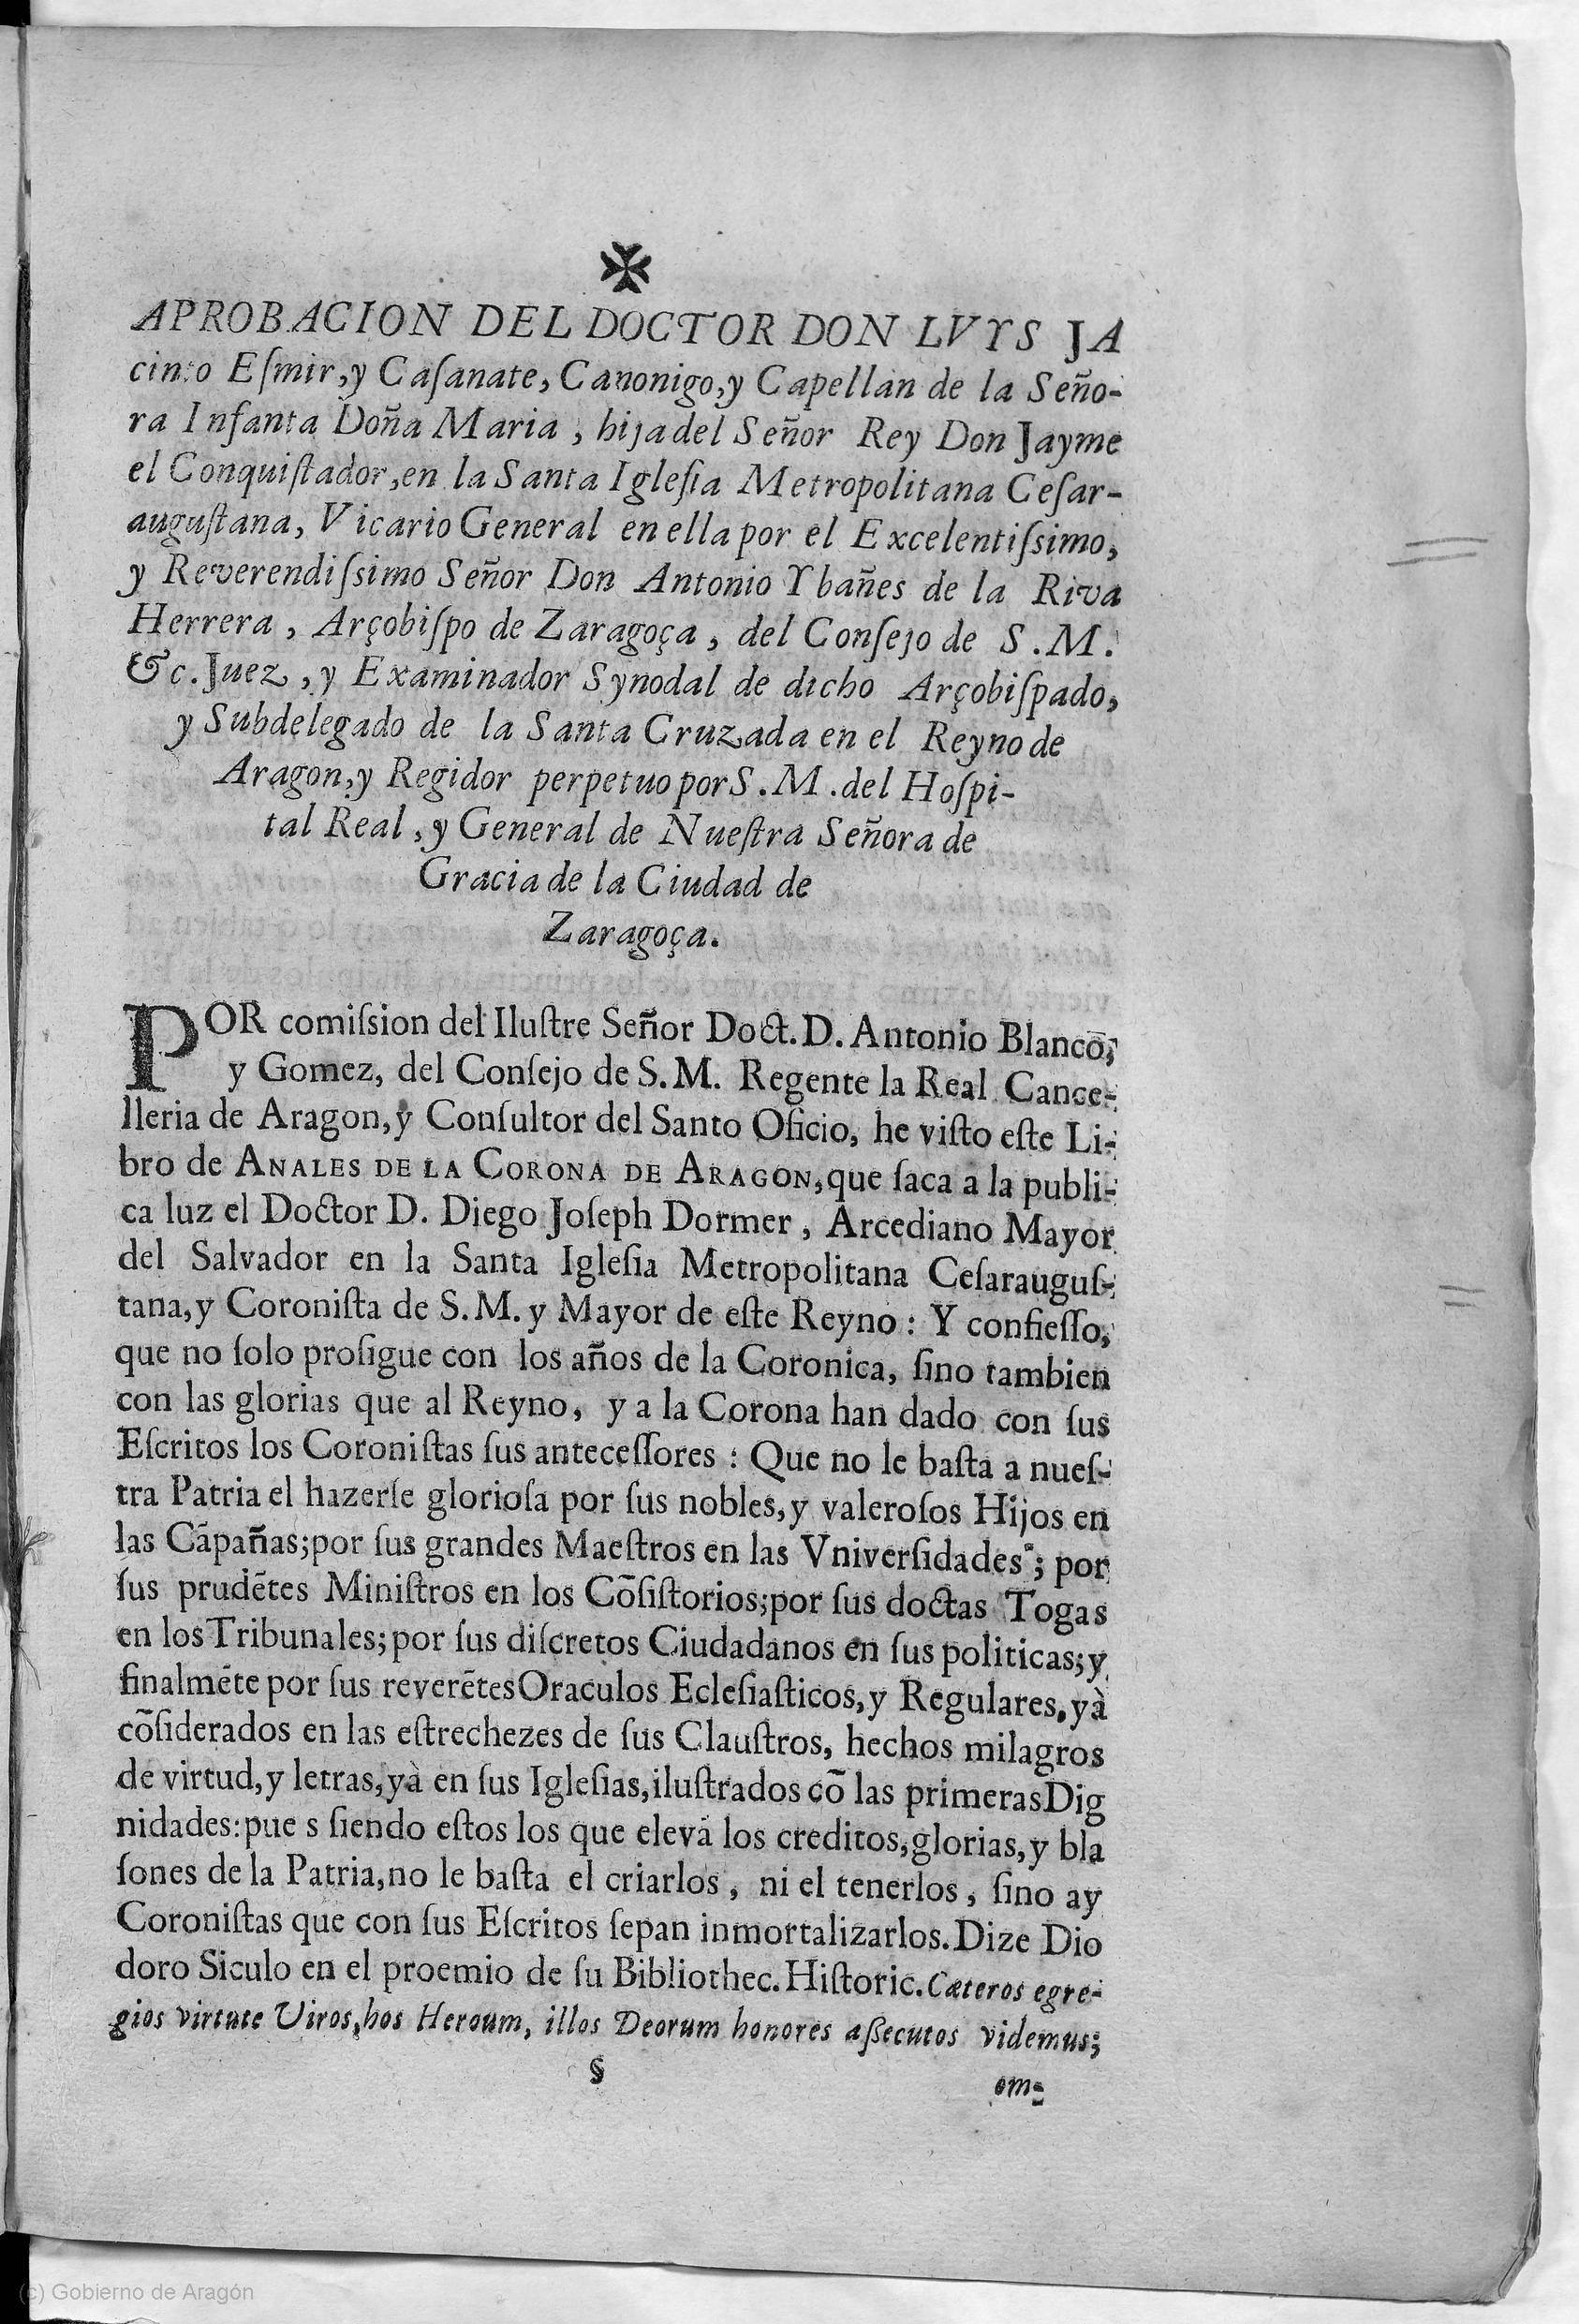 ✠
APROBACION DEL DOCTOR DON LVYS JA
cinto Eſmir, y Caſanate, Canonigo, y Capellan de la Seño-
ra Infanta Doña Maria, hija del Señor Rey Don Jayme
el Conquiſtador, en la Santa Igleſia Metropolitana Ceſar-
auguſtana, Vicario General en ella por el Excelentiſsimo,
y Reverendiſsimo Señor Don Antonio Ybañes de la Riva
Herrera, Arçobiſpo de Zaragoça, del Conſejo de S. M.
&c. Juez, y Examinador Synodal de dicho Arçobiſpado,
y Subdelegado de la Santa Cruzada en el Reyno de
Aragon, y Regidor perpetuo por S. M. del Hoſpi-
tal Real, y General de Nueſtra Señora de
Gracia de la Ciudad de
Zaragoça.
POR comiſsion del Iluſtre Señor Doct. D. Antonio Blanco,
y Gomez, del Conſejo de S. M. Regente la Real Cance-
lleria de Aragon, y Conſultor del Santo Oficio, he viſto eſte Li-
bro de ANALES DE LA CORONA DE ARAGON, que ſaca a la publi-
ca luz el Doctor D. Diego Joſeph Dormer, Arcediano Mayor
del Salvador en la Santa Igleſia Metropolitana Ceſarauguſ-
tana, y Coroniſta de S. M. y Mayor de eſte Reyno: Y confieſſo,
que no ſolo proſigue con los años de la Coronica, ſino tambien
con las glorias que al Reyno, y a la Corona han dado con ſus
Eſcritos los Coroniſtas ſus anteceſſores: Que no le baſta a nueſ-
tra Patria el hazerſe glorioſa por ſus nobles, y valeroſos Hijos en
las Cãpañas; por ſus grandes Maeſtros en las Vniverſidades; por
ſus prudẽtes Miniſtros en los Cõſiſtorios; por ſus doctas Togas
en los Tribunales; por ſus diſcretos Ciudadanos en ſus politicas; y
finalmẽte por ſus reverẽtes Oraculos Ecleſiaſticos, y Regulares, yà
cõſiderados en las eſtrechezes de ſus Clauſtros, hechos milagros
de virtud, y letras, yà en ſus Igleſias, iluſtrados cõ las primeras Dig
nidades: pue s ſiendo eſtos los que elevã los creditos, glorias, y bla
ſones de la Patria, no le baſta el criarlos, ni el tenerlos, ſino ay
Coroniſtas que con ſus Eſcritos ſepan inmortalizarlos. Dize Dio
doro Siculo en el proemio de ſu Bibliothec. Hiſtoric. Cæteros egre-
gios virtute Viros, hos Heroum, illos Deorum honores aſſecutos videmus;
§
om-
(c) Gobierno de Aragón